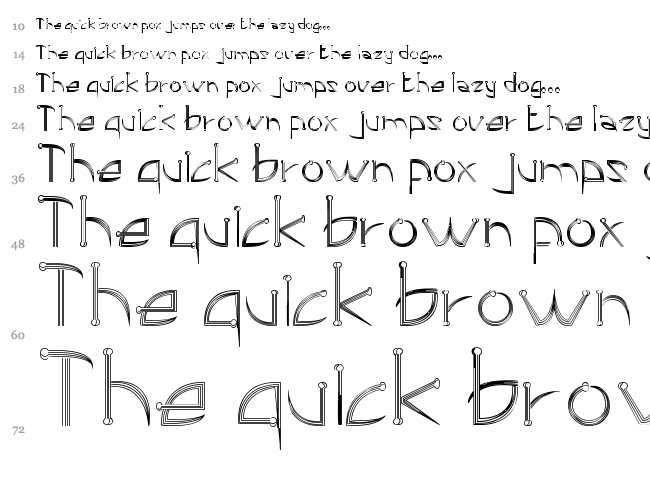 10 The quick brown pox jumps over the lazy dog...
14 The quick brown pox jumps over the lazy dog...
18 The quick brown pox jumps over the lazy dog...
24 The quick brown pox jumps over the lazy
36 The quick brown pox jumps o
48 The quick brown pox
60 The quick brown
72 The quick brow